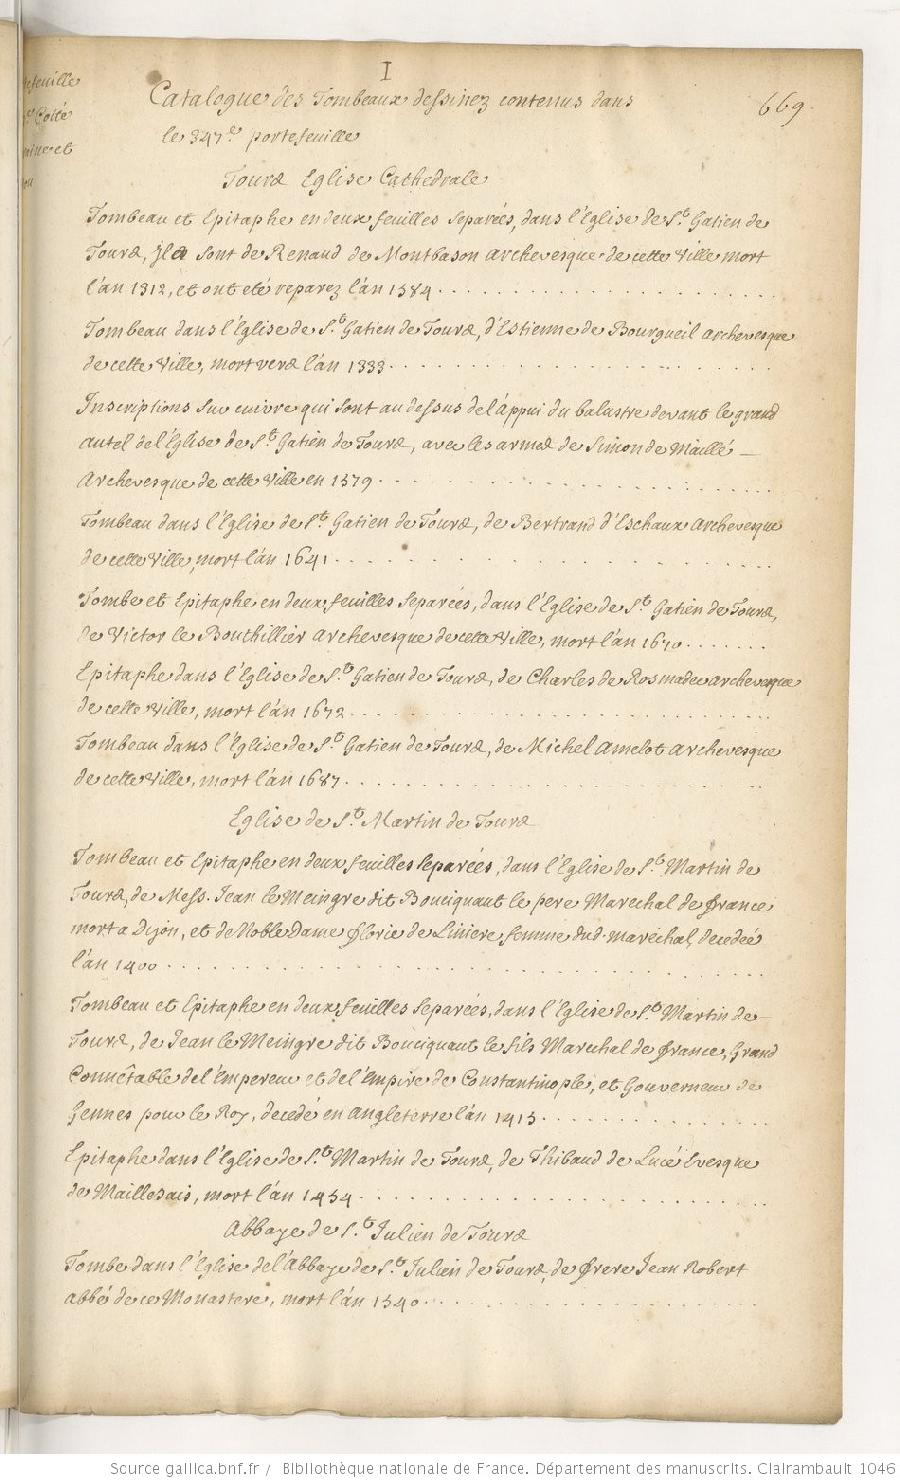 I
669.
Catalogue des Tombeaux dessinez contenus dans
le 347.e portefeuille
Tours Eglise Cathedrale
Tombeau et Epitaphe en deux feuilles separées, dans l'Eglise de St. Gatien de
Tours, Il sont de Renaud de Montbason archevesque de cette Ville mort
l'an 1312, et ont eté reparez l'an 1584
Tombeau dans l'Eglise de St. Gatien de Tours, d'Estienne de Bourgueil archevesque
de cette Ville, mort vers l'an 1333
Inscriptions sur cuivre qui sont au dessus de l'appui du balustre devant le grand
autel de l'Eglise de St. Gatien de Tours, avec les armes de Simon de Maillé
Archevesque de cette Ville en 1579
Tombeau dans l'Eglise de St. Gatien de Tours, de Bertrand d'Eschaux Archevesque
de cette Ville, mort l'an 1641
Tombe et Epitaphe en deux feuilles separées, dans l'Eglise de St. Gatien de Tours,
de Victor le Bouthillier archevesque de cette Ville, mort l'an 1670
Epitaphe dans l'Eglise de St. Gatien de Tours, de Charles de Rosmadec archevesque
de cette Ville, mort l'an 1672
Tombeau dans l'Eglise de St. Gatien de Tours, de Michel Amelot archevesque
de cette Ville, mort l'an 1687
Eglise de St. Martin de Tours
Tombeau et Epitaphe en deux feuilles separées, dans l'Eglise de St. Martin de
Tours, de Mess. Jean le Meingre dit Bouciquaut le pere Marechal de France
mort a Dijon, et de Noble Dame Florie de Liniere femme dud. marechal, decedée
l'an 1400
Tombeau et Epitaphe en deux feuilles separées, dans l'Eglise de St. Martin de
Tours, de Jean le Meingre dit Bouciquaut le fils Marechal de France, Grand
Connêtable de l'Empereur et de l'Empire de Constantinople, et Gouverneur de
Gennes pour le Roy, decedé en angleterre l'an 1415
Epitaphe dans l'Eglise de St. Martin de Tours, de Thibaud de Lucé Evesque
de Maillesais, mort l'an 1454
Abbaye de St. Julien de Tours
Tombe dans l'Eglise de l'Abbaye de St. Julien de Tours, de Frere Jean Robert
abbé de ce Monastere, mort l'an 1540
Source gallica.bnf.fr / Bibliothèque nationale de France. Département des manuscrits. Clairambault 1046